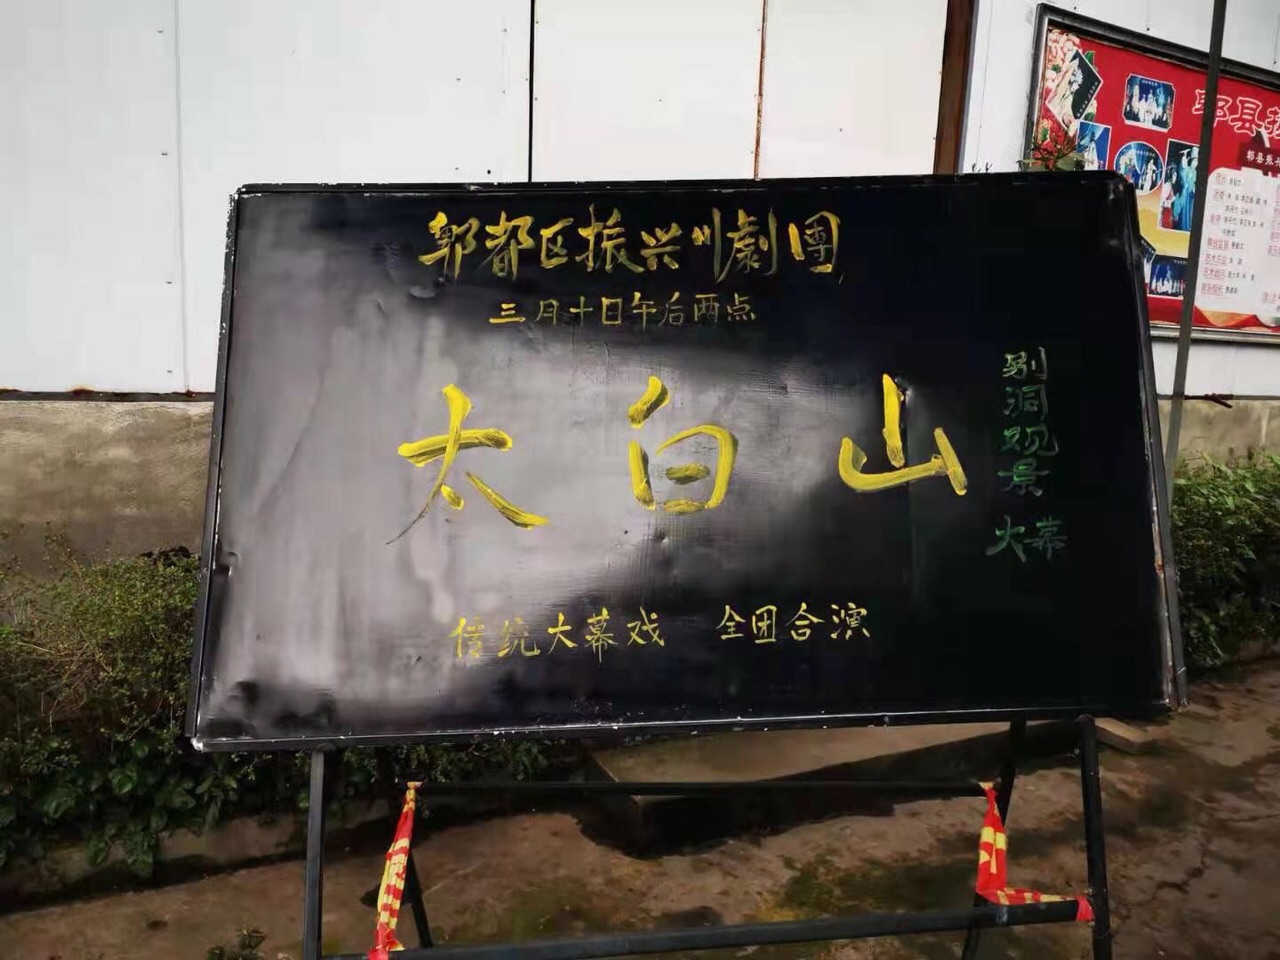 郫都区振兴川劇團
三月十日午后两点
太白山
别洞观景 大幕
传统大幕戏 全团合演
郫县振